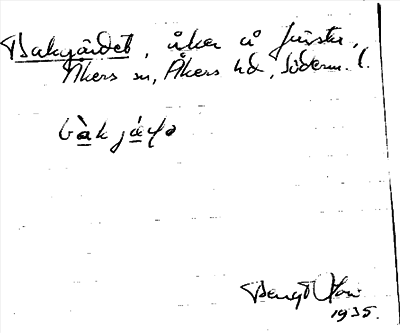 Bakgärdet, åker å
Åkers sn, Åkers hd, Söderm. l.
bàkjä
Bengt
1935.